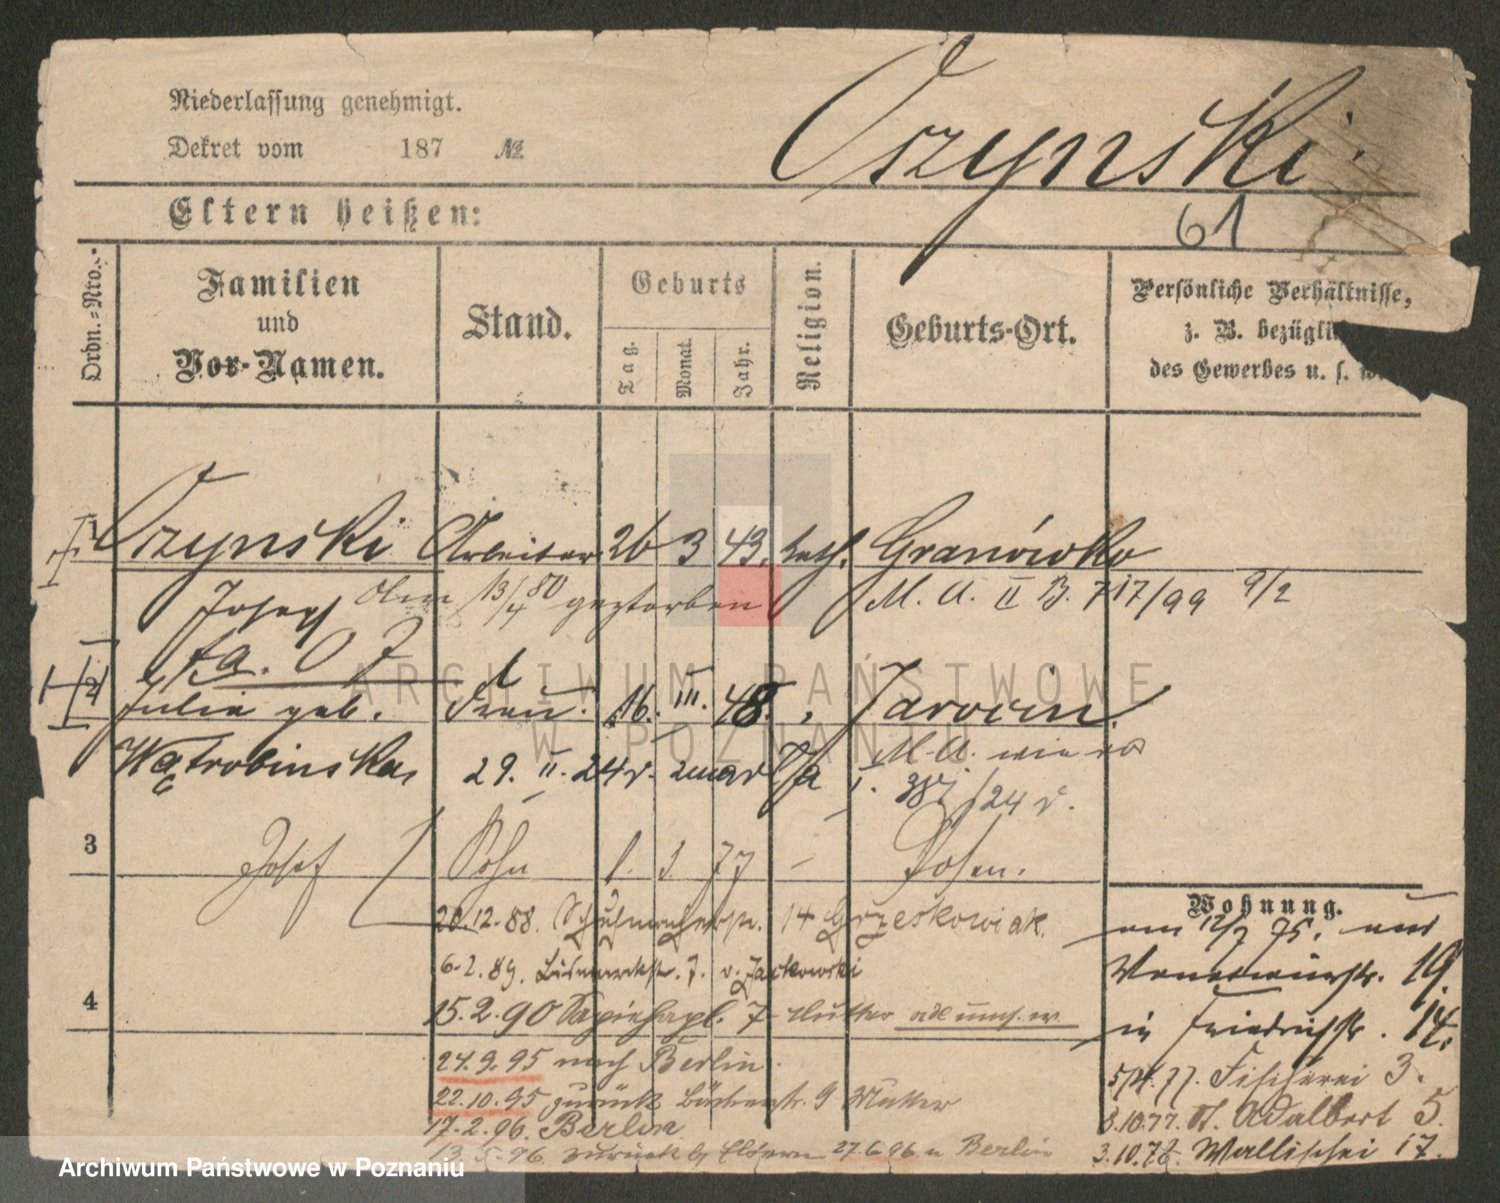 Niederlassung genehmigt.
Dekret vom 187 №
Oszynski
61
Eltern heißen:
Ordn.-Nro.
Familien
und
Vor-Namen.
Stand.
Geburts
Tag.
Monat.
Jahr.
Religion.
Geburts-Ort.
Persönliche Verhältnisse,
z. B. bezügli
des Gewerbes u. s. w.
1 Oszynski Arbeiter 26 3 43. kath. Granówko
Josef 13/4 80 gestorben M. A. II B. 717/99 9/2
2
Julie geb. Frau. 16. III. 48. Jarocin.
Wątrobinska, 29. II. 24 M. A. wie
I. /24
3 Josef Sohn 1. 3 77 - Posen.
20.12.88. 14 Grzeskowiak.
6.2.89. Bismarckstr. 7. v. Jackowski
4
15.2.90 Sapiehapl. 7 Mutter
24.9.95 nach Berlin.
22.10.95 zurück 9 Mutter
17.2.96. Berlin
96. zurück Eltern 27.6.96 n Berlin
Wohnung.
am 12/7 75. aus
19.
in Friedrichstr. 14.
5/4.77. Fischerei 3.
8.10.77. St. Adalbert 5.
3.10.78. Wallischei 17.
ARCHIWUM PAŃSTWOWE
W POZNANIU
Archiwum Państwowe w Poznaniu